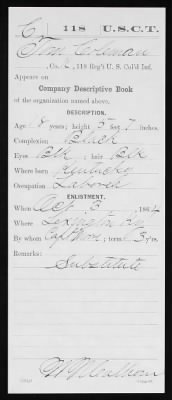 C | 118 | U.S.C.T.
Tom Coleman
, Co. C, 118 Reg't U. S. Col'd Inf.
Appears on
Company Descriptive Book
of the organization named above.
DESCRIPTION.
Age 18 years; height 5 feet 7 inches.
Complexion Black
Eyes Blk; hair Blk
Where born Kentucky
Occupation Laborer
ENLISTMENT.
When Oct 3, 1864
Where Lexington Ky
By whom Capt; term 3 y'rs.
Remarks:
Substitute